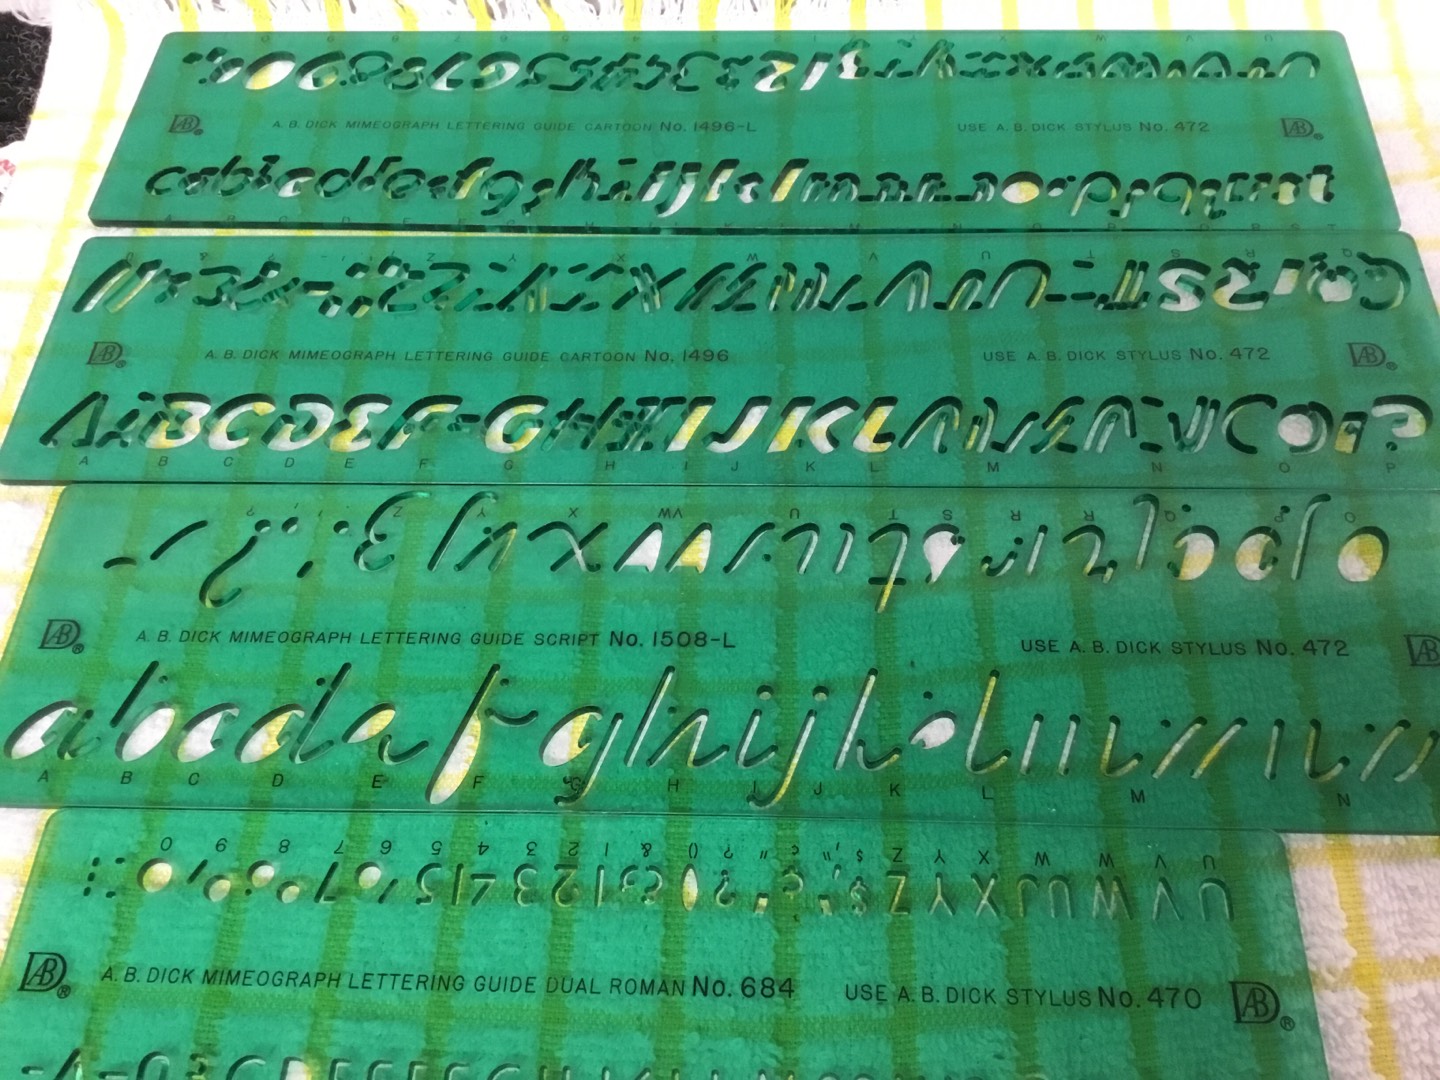 0 9 8 7 6 5 4 3 2 1 Z Y X W V U
AB® A. B. DICK MIMEOGRAPH LETTERING GUIDE CARTOON No. 1496-L USE A. B. DICK STYLUS No. 472 AB®
a b c d e f g h i j k l m n o p q r s t
& ? ! Z Y X W V U T S R Q
AB® A. B. DICK MIMEOGRAPH LETTERING GUIDE CARTOON No. 1496 USE A. B. DICK STYLUS No. 472 AB®
A B C D E F G H I J K L M N O P
A B C D E F G H I J K L M N O P
? Z Y X W V U T S R R Q P O
AB® A. B. DICK MIMEOGRAPH LETTERING GUIDE SCRIPT No. 1508-L USE A. B. DICK STYLUS No. 472 AB
a b c d e f g h i j k l
A B C D E F G H I J K L M N
0 9 8 7 6 5 4 3 2 1 & () ? " ¢ ," $ Z Y X W W V U
AB® A. B. DICK MIMEOGRAPH LETTERING GUIDE DUAL ROMAN No. 684 USE A. B. DICK STYLUS No. 470 AB®